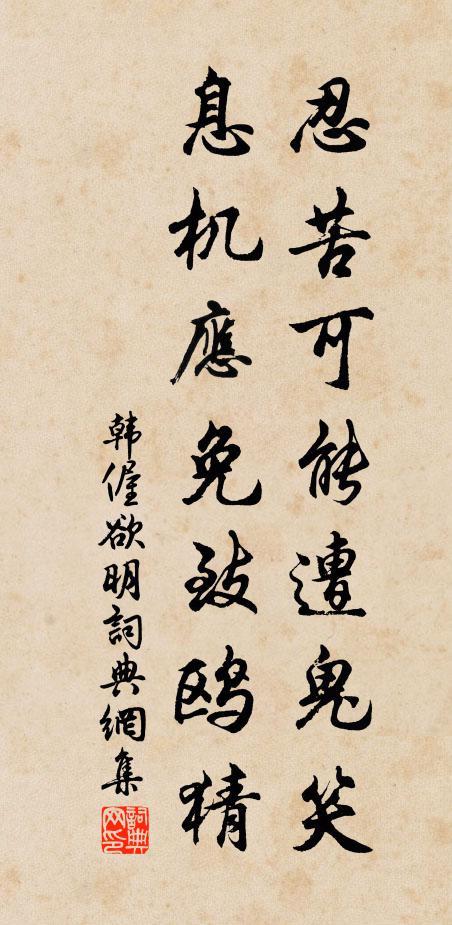 忍苦可能遭鬼笑
息机應免致鸥猜
韩偓欲明詞典網集
詞典网印